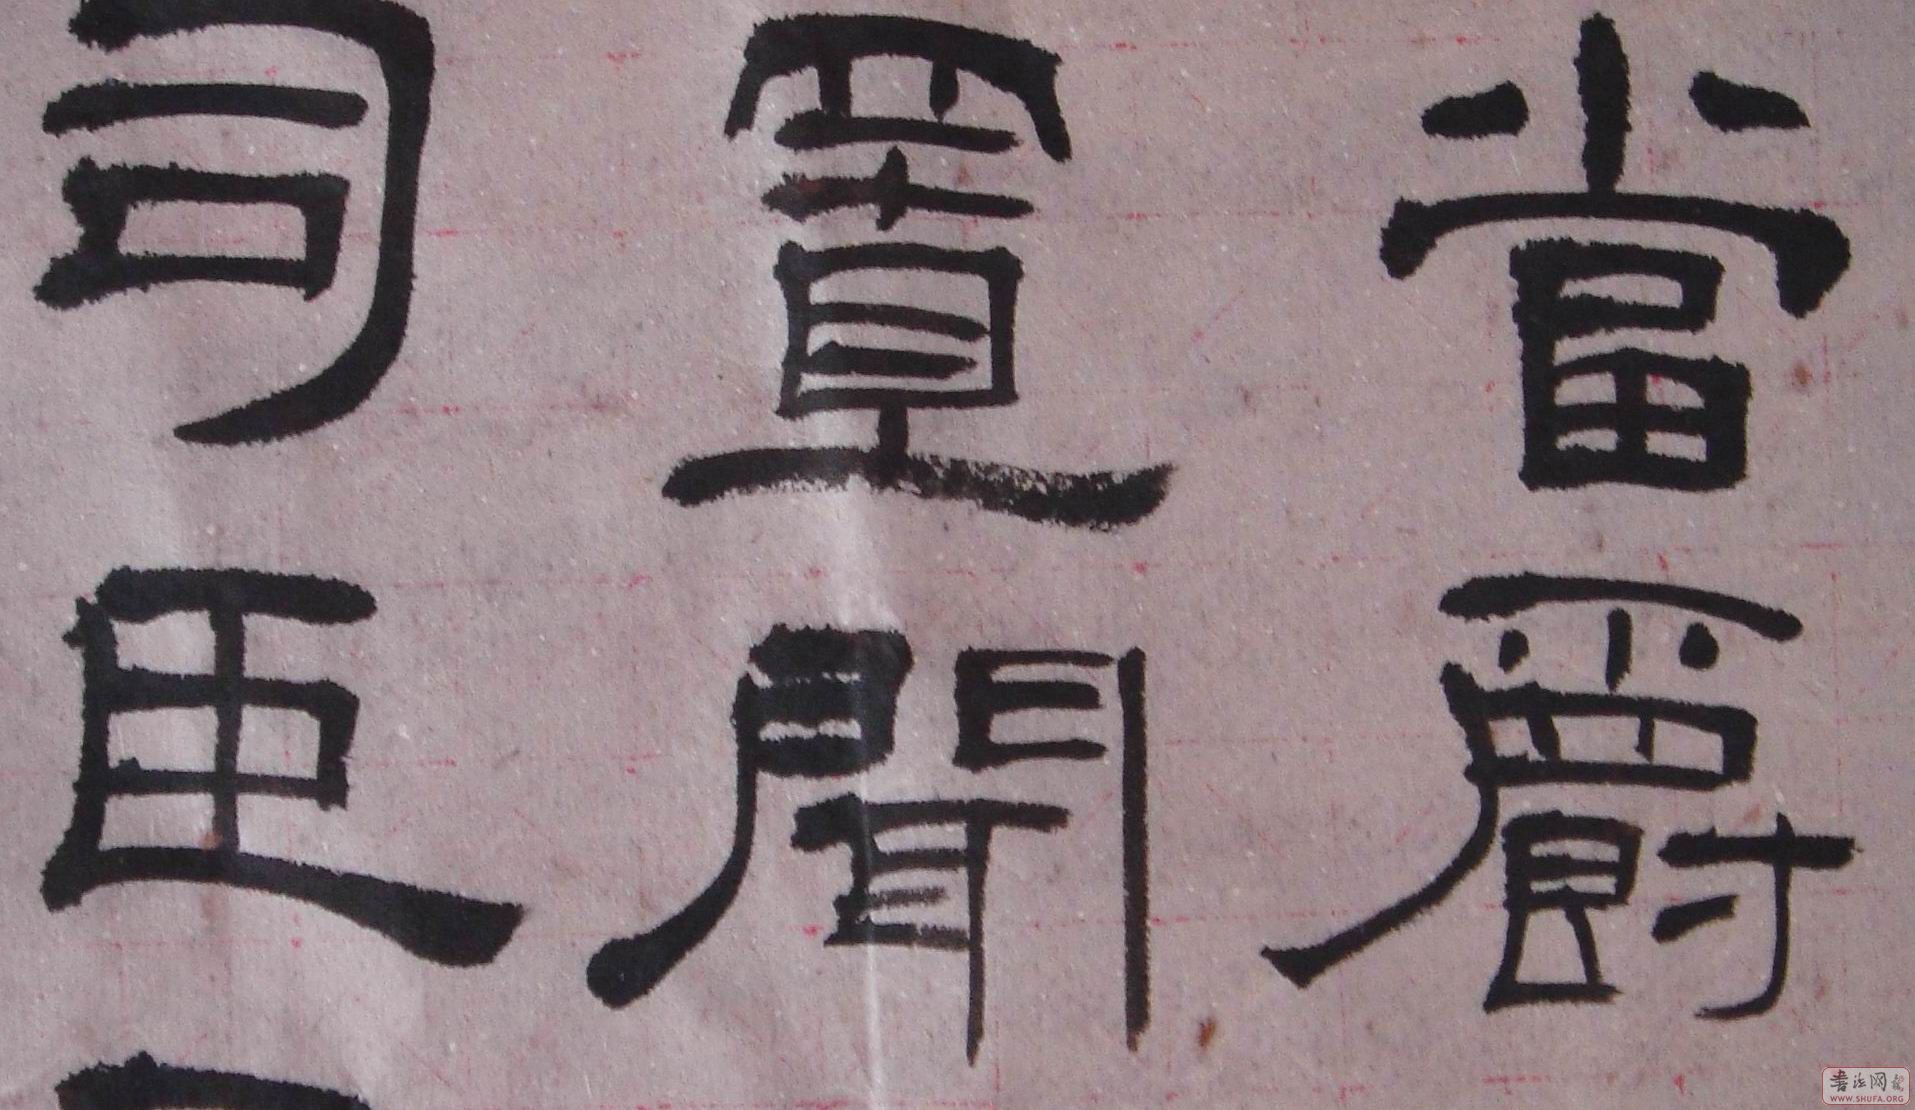 當爵
置聞
司臣
書法网
WWW.SHUFA.ORG